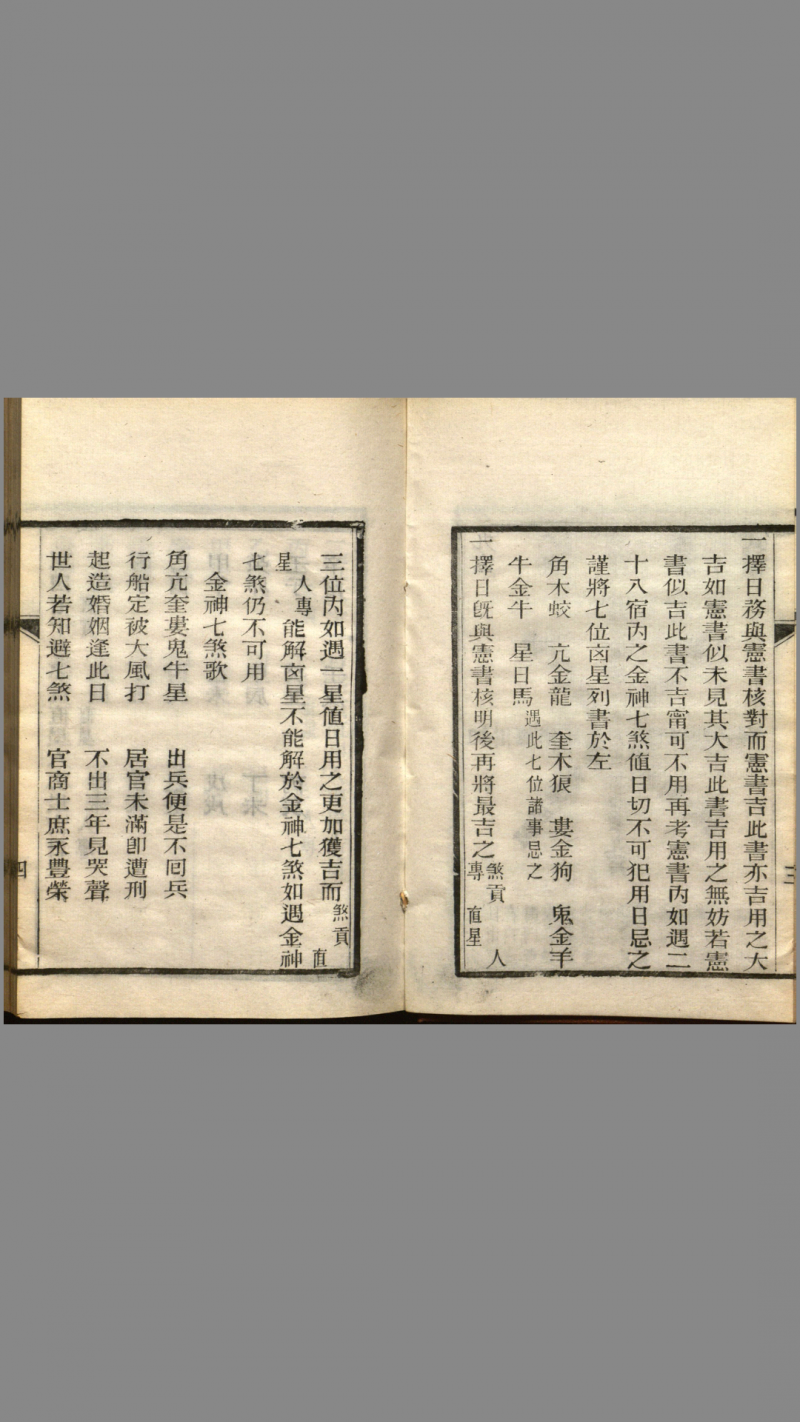 一擇日務與憲書核對而憲書吉此書亦吉用之大
吉如憲書似未見其大吉此書吉用之無妨若憲
書似吉此書不吉甯可不用再考憲書內如遇二
十八宿內之金神七煞值日切不可犯用日忌之
謹將七位凶星列書於左
角木蛟 亢金龍 奎木狼 婁金狗 鬼金羊
牛金牛 星日馬 遇此七位諸事忌之
一擇日既與憲書核明後再將最吉之煞貢 人專 直星
三
三位內如遇一星值日用之更加獲吉而煞貢 直
星 人專能解凶星不能解於金神七煞如遇金神
七煞仍不可用
金神七煞歌
角亢奎婁鬼牛星 出兵便是不囘兵
行船定被大風打 居官未滿卽遭刑
起造婚姻逢此日 不出三年見哭聲
世人若知避七煞 官商士庶永豐榮
四